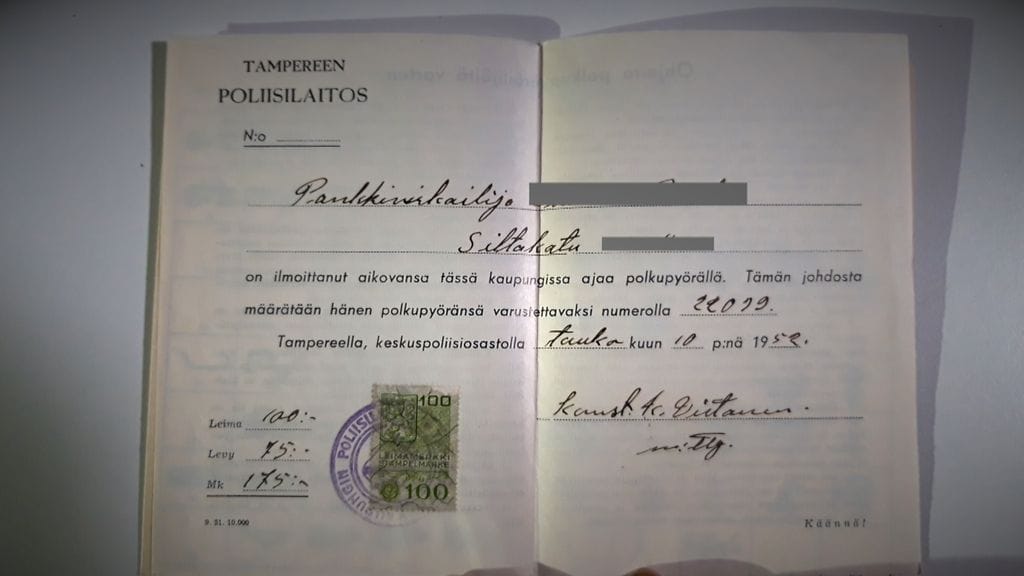 TAMPEREEN
POLIISILAITOS
N:o
Pankkivirkailija
Siltakatu
on ilmoittanut aikovansa tässä kaupungissa ajaa polkupyörällä. Tämän johdosta
määrätään hänen polkupyöränsä varustettavaksi numerolla 22099.
Tampereella, keskuspoliisiosastolla touko kuun 10 p:nä 1952.
Leima 100:-
Levy 75:-
Mk 175:-
100
LEIMAMERKKI
STÄMPELMÄRKE
100
Konst. K. Virtanen.
9. 51. 10.000
Käännä!